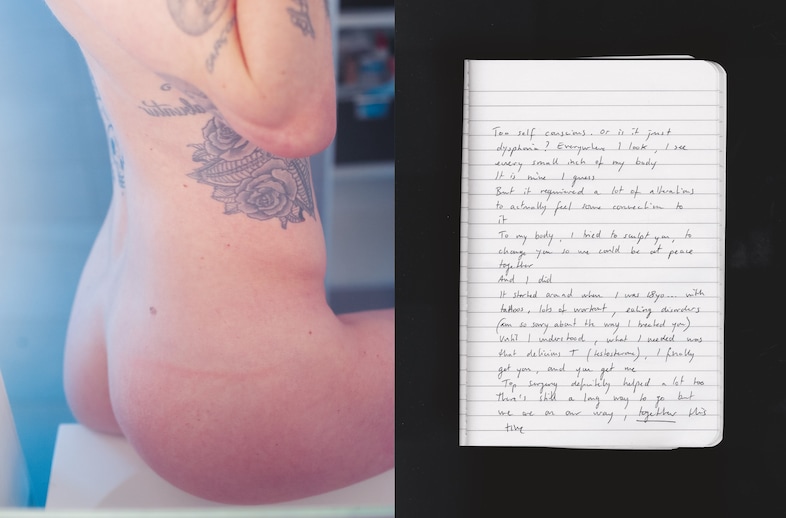 Too self conscious. Or is it just
dysphoria? Everywhere I look, I see
every small inch of my body
It is mine I guess
But it requiered a lot of alterations
to actually feel some connection to
it
To my body, I tried to sculpt you, to
change you so we could be at peace
together
And I did
It started around when I was 18yo... with
tattoos, lots of workout, eating disorders
(am so sorry about the way I treated you)
Until I understood, what I needed was
that delicious T (testosterone), I finally
got you, and you get me
Top surgery definitely helped a lot too
There's still a long way to go but
we are on our way, together this
time